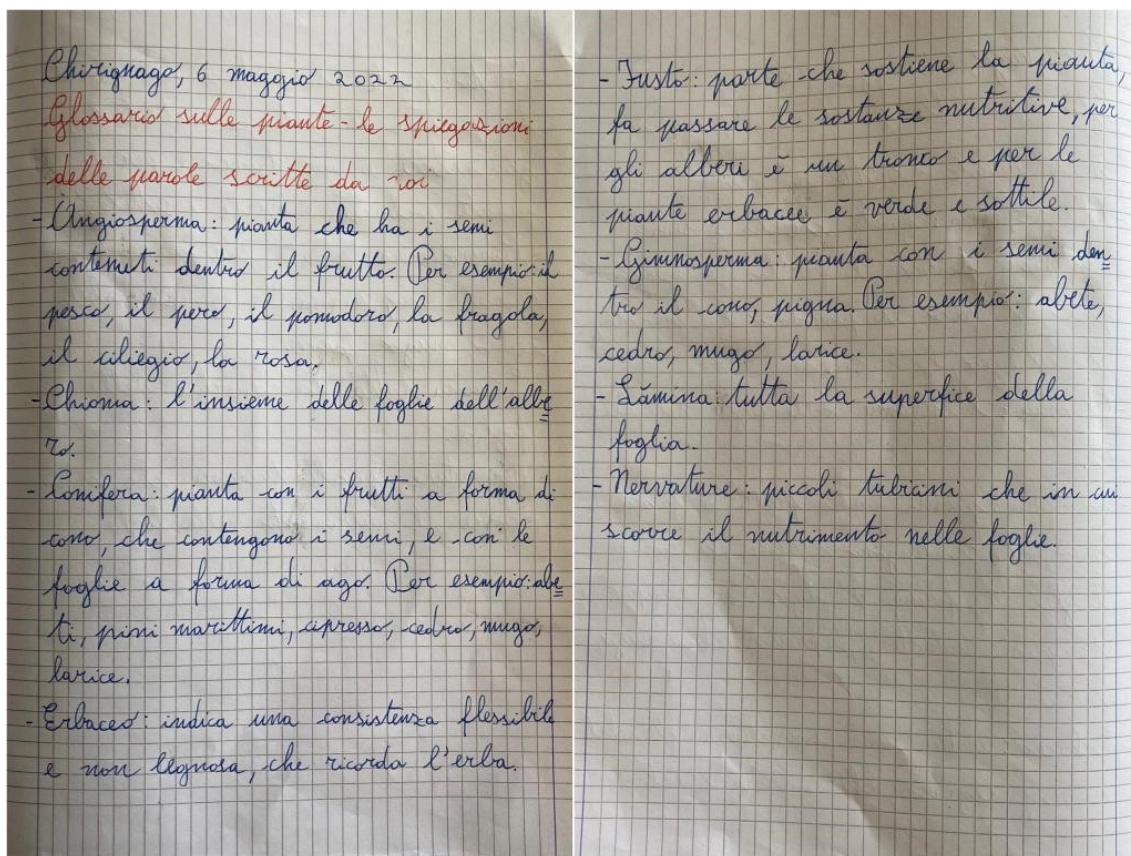 Chirignago, 6 maggio 2022
Glossario sulle piante - le spiegazioni
delle parole scritte da noi
- Angiosperma: pianta che ha i semi
contenuti dentro il frutto. Per esempio: il
pesco, il pero, il pomodoro, la fragola,
il ciliegio, la rosa.
- Chioma: l'insieme delle foglie dell'albe
ro.
- Conifera: pianta con i frutti a forma di
cono, che contengono i semi, e con le
foglie a forma di ago. Per esempio: abe
ti, pini marittimi, cipresso, cedro, mugo,
larice.
- Erbaceo: indica una consistenza flessibile
e non legnosa, che ricorda l'erba.
- Fusto: parte che sostiene la pianta,
fa passare le sostanze nutritive, per
gli alberi è un tronco e per le
piante erbacee è verde e sottile.
- Gimnosperma: pianta con i semi den
tro il cono, pigna. Per esempio: abete,
cedro, mugo, larice.
- Lamina: tutta la superfice della
foglia.
- Nervature: piccoli tubicini che in cui
scorre il nutrimento nelle foglie.